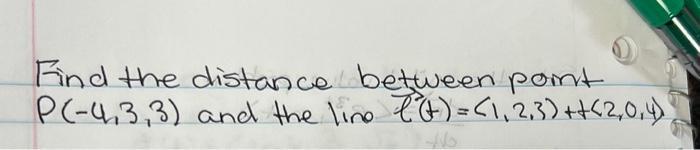 Find the distance between point
P(-4,3,3) and the line ℓ⃗(t)=<1,2,3)+t<2,0,4)